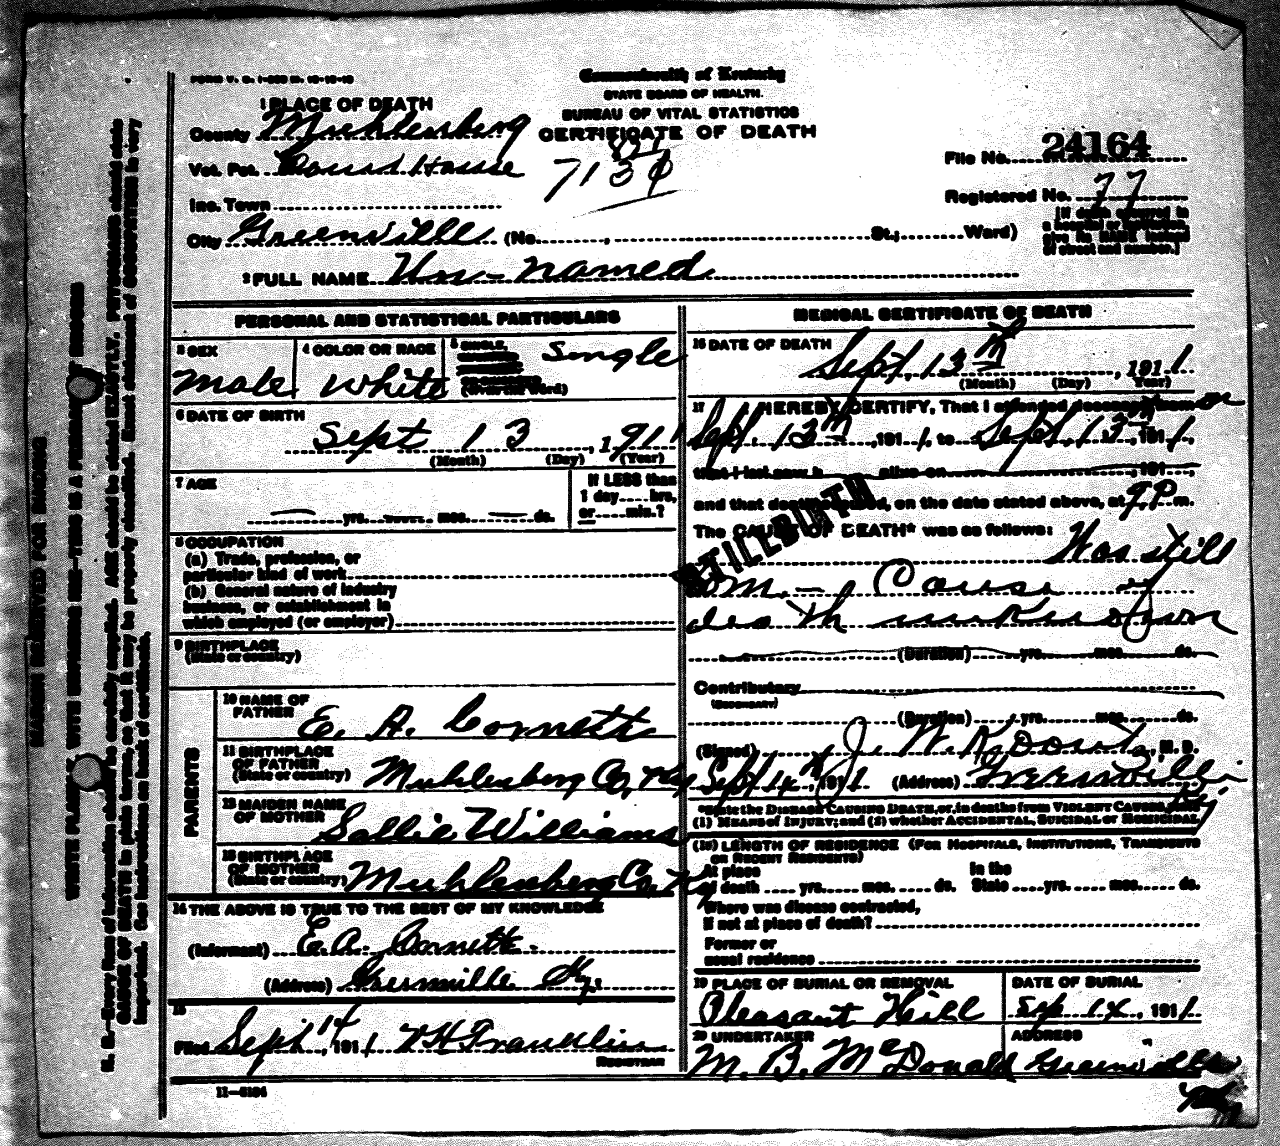 FORM V. S. 1-
Commonwealth of Kentucky
STATE BOARD OF HEALTH.
BUREAU OF VITAL STATISTICS
CERTIFICATE OF DEATH
1 PLACE OF DEATH
County Muhlenberg
Vot. Pct. Court House
713
Inc. Town
City Greenville (No. , St.; Ward)
File No. 24164
Registered No. 77
[If death occurred in
a hospital or institution,
give its NAME instead
of street and number.]
2 FULL NAME Un-named
PERSONAL AND STATISTICAL PARTICULARS
3 SEX
Male
4 COLOR OR RACE
White
5 SINGLE,
(Write the word)
Single
6 DATE OF BIRTH
Sept 13, 1911
(Month) (Day) (Year)
7 AGE
yrs. mos. ds.
If LESS than
1 day.....hrs,
or.....min.?
8 OCCUPATION
(a) Trade, profession, or
particular kind of work
(b) General nature of industry
business, or establishment in
which employed (or employer)
9 BIRTHPLACE
(State or country)
PARENTS
10 NAME OF
FATHER E. A. Cornett
11 BIRTHPLACE
OF FATHER
(State or country) Muhlenberg Co, Ky
12 MAIDEN NAME
OF MOTHER Sallie Williams
13 BIRTHPLACE
OF MOTHER
(State or country) Muhlenberg Co, Ky
14 THE ABOVE IS TRUE TO THE BEST OF MY KNOWLEDGE
(Informant) E.A. Cornett.
(Address) Greenville Ky.
15
Filed Sept 14, 1911 Franklin
REGISTRAR
11-5184
MEDICAL CERTIFICATE OF DEATH
16 DATE OF DEATH
Sept, 13th, 1911
(Month) (Day) (Year)
17 I HEREBY CERTIFY, That I attended deceased from on
Sept. 13th, 1911, to Sept. 13th, 1911,
that I last saw h alive on , 191 ,
and that death occurred, on the date stated above, at 9.P.m.
The CAUSE OF DEATH* was as follows:
STILLBIRTH
Was still
born. - Cause of
death unknown
(Duration) yrs. mos. ds.
Contributary
(SECONDARY)
(Duration) yrs. mos. ds.
(Signed) J. W. , M. D.
Sept 14th, 1911 (Address) Greenville
Ky
*State the DISEASE CAUSING DEATH, or, in deaths from VIOLENT CAUSES,
(1) MEANS of INJURY; and (2) whether ACCIDENTAL, SUICIDAL or HOMICIDAL
(18) LENGTH OF RESIDENCE (FOR HOSPITALS, INSTITUTIONS, TRANSIENTS
OR RECENT RESIDENTS)
At place In the
of death yrs. mos. ds. State yrs. mos. ds.
Where was disease contracted,
if not at place of death?
Former or
usual residence
19 PLACE OF BURIAL OR REMOVAL
Pleasant Hill
DATE OF BURIAL
Sep 14, 1911
20 UNDERTAKER
M. B. McDonald
ADDRESS
Greenville
Ky
MARGIN RESERVED FOR BINDING
WRITE PLAINLY, WITH UNFADING INK—THIS IS A PERMANENT RECORD
N. B.—Every item of information should be carefully supplied. AGE should be stated EXACTLY. PHYSICIANS should state
CAUSE OF DEATH in plain terms, so that it may be properly classified. Exact statement of OCCUPATION is very
important. See instructions on back of certificate.